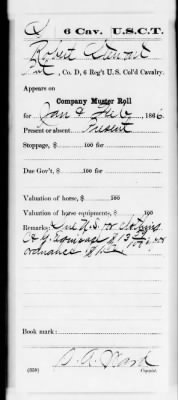 6 Cav. U.S.C.T.
Robert Steward
, Co. D, 6 Reg't U. S. Col'd Cavalry.
Appears on
Company Muster Roll
for Jan & Feb, 1866.
Present or absent. Present
Stoppage, $ 100 for
Due Gov't, $ 100 for
Valuation of horse, $ 100
Valuation of horse equipments, $ 100
Remarks: Due U.S. for clothing
ordnance
Book mark:
(358) Copyist.